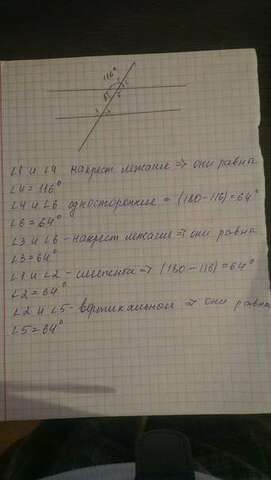 116°
∠1 и ∠4 накрест лежащие ⇒ они равны
∠4 = 116°
∠4 и ∠6 односторонние = (180-116)=64°
∠6 = 64°
∠3 и ∠6 - накрест лежащие ⇒ они равны
∠3 = 64°
∠1 и ∠2 - смежные ⇒ (180-116) = 64°
∠2 = 64°
∠2 и ∠5 - вертикальные ⇒ они равны
∠5 = 64°